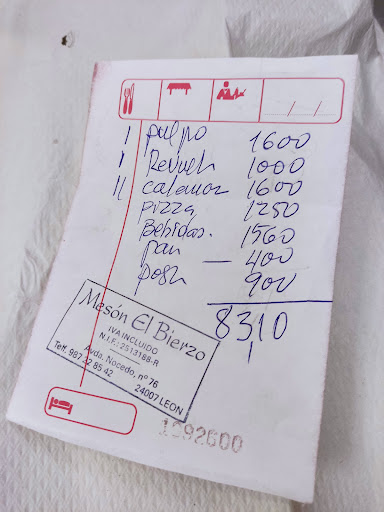 1 pulpo 1600
1 Revuelt 1000
11 calamar 1600
pizza 1250
Bebidas. 1560
pan — 400
post 900
8310
Mesón El Bierzo
IVA INCLUIDO
N.I.F.: 2513188-R
Avda. Nocedo, nº 76
Telf. 987 22 85 42 24007 LEON
1392600